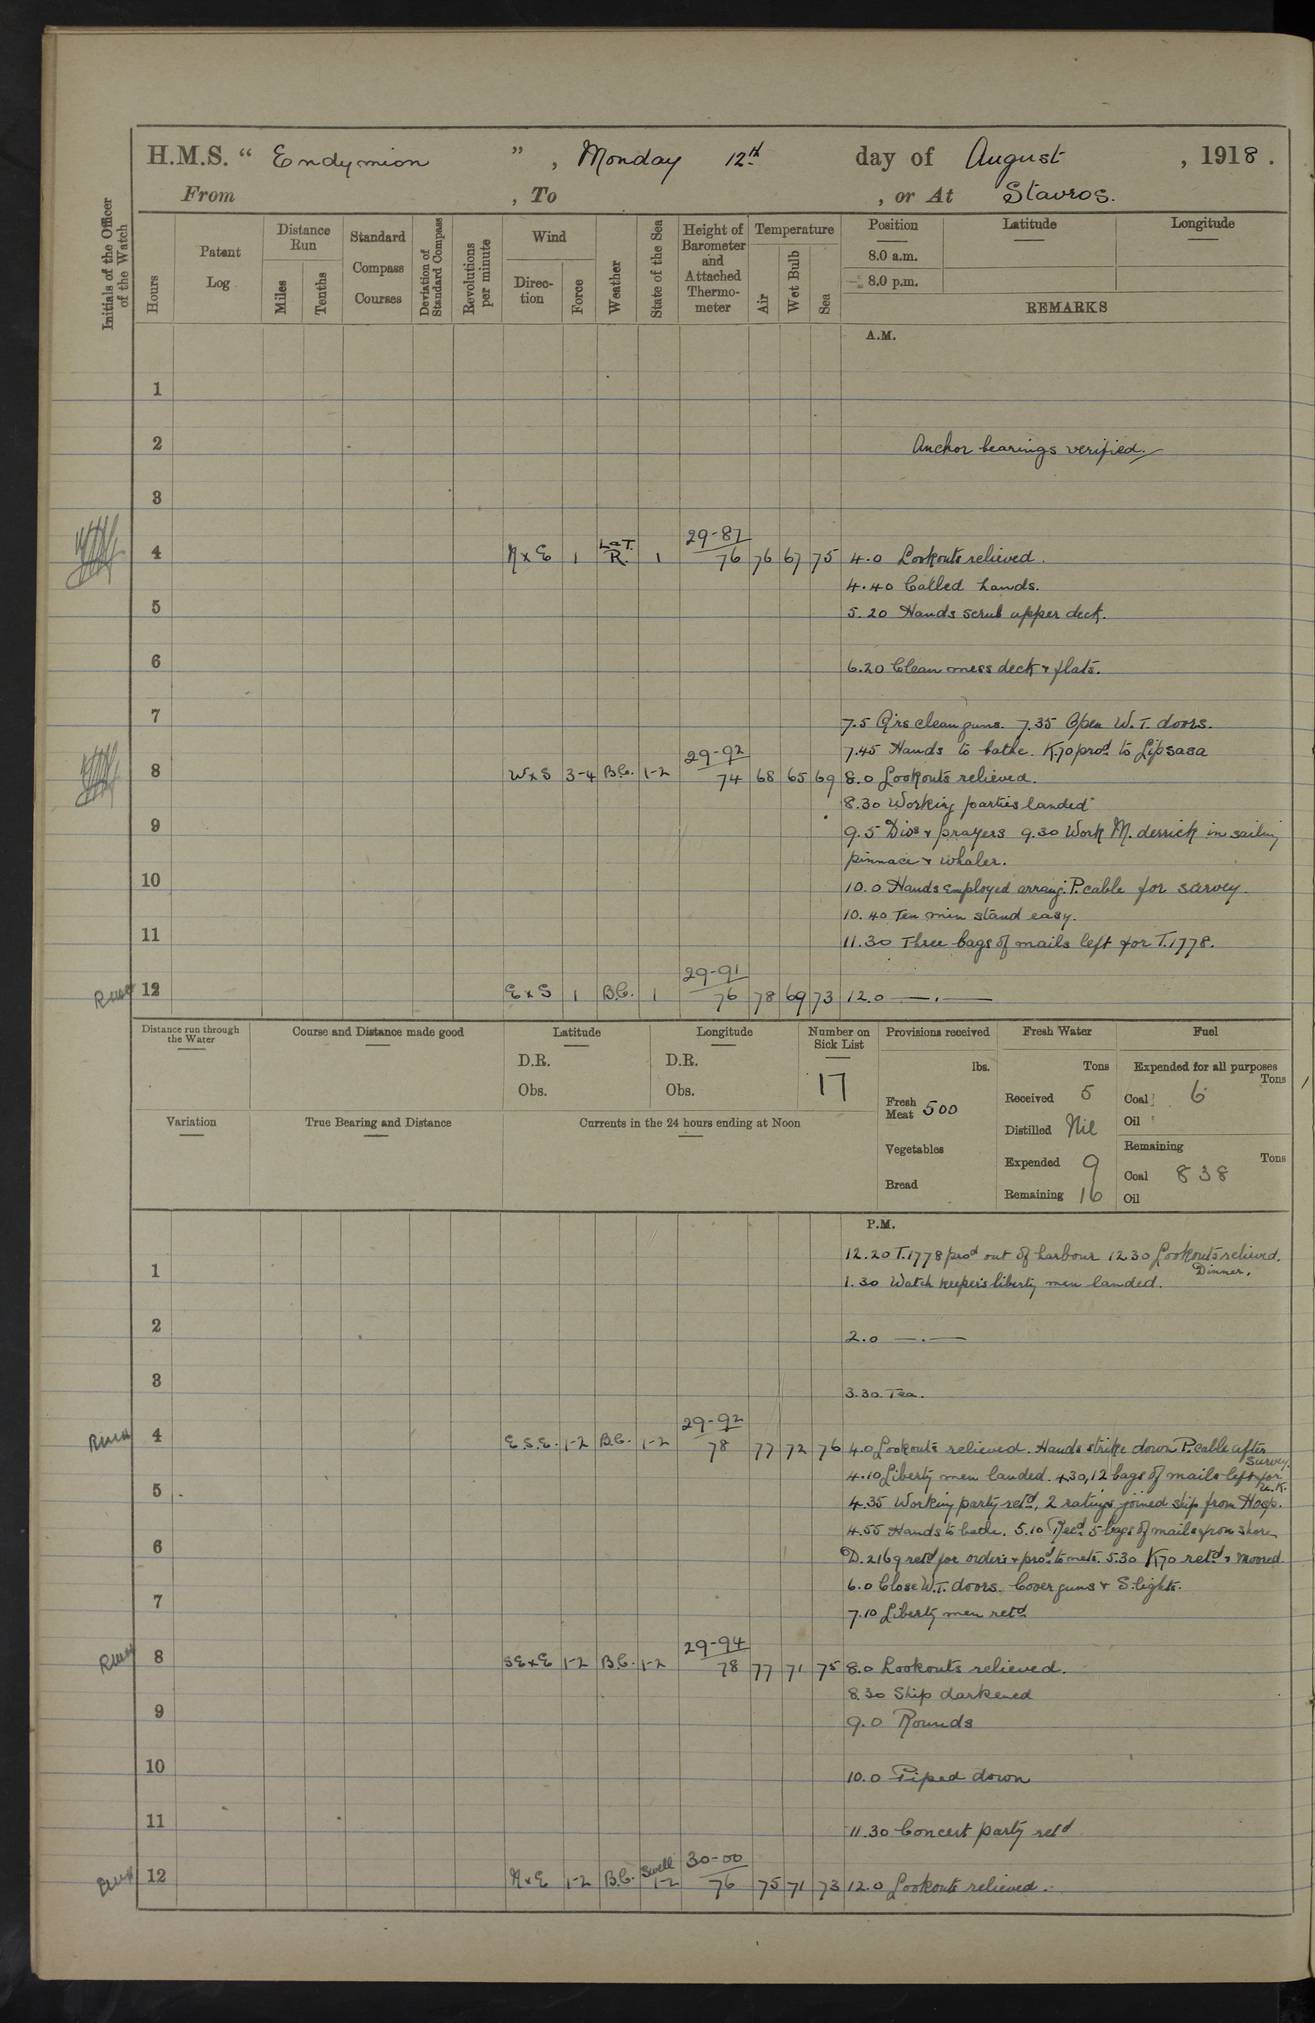 H.M.S. " Endymion ", Monday 12th day of August, 1918.
From , To , or At Stavros.
Initials of the Officer of the Watch
Hours
Patent Log
Distance Run
Miles
Tenths
Standard Compass Courses
Deviation of Standard Compass
Revolutions per minute
Wind
Direction
Force
Weather
State of the Sea
Height of Barometer and Attached Thermometer
Temperature
Air
Wet Bulb
Sea
Position
8.0 a.m.
8.0 p.m.
Latitude
Longitude
REMARKS
A.M.
1
2 Anchor bearings verified.
3
4 N x E 1 L&T. R. 1 29-87 76 76 67 75 4.0 Lookouts relieved.
4.40 Called hands.
5 5.20 Hands scrub upper deck.
6 6.20 Clean mess deck & flats.
7 7.5 Q'rs clean guns. 7.35 Open W.T. doors.
7.45 Hands to bathe. K70 prod to Lipsasa
8 W x S 3-4 B.C. 1-2 29-92 74 68 65 69 8.0 Lookouts relieved.
8.30 Working parties landed
9 9.5 Divs & prayers 9.30 Work M. derrick in sailing
pinnace & whaler.
10 10.0 Hands employed arrang. P. cable for survey.
10.40 Ten min stand easy.
11 11.30 Three bags of mails left for T.1778.
12 E x S 1 B.C. 1 29-91 76 78 69 73 12.0 — . —
Distance run through the Water
Course and Distance made good
Latitude
D.R.
Obs.
Longitude
D.R.
Obs.
Number on Sick List
17
Provisions received
lbs.
Fresh Meat 500
Vegetables
Bread
Fresh Water
Tons
Received 5
Distilled Nil
Expended 9
Remaining 16
Fuel
Expended for all purposes
Tons
Coal 6
Oil
Remaining
Tons
Coal 838
Oil
Variation
True Bearing and Distance
Currents in the 24 hours ending at Noon
P.M.
12.20 T.1778 prod out of harbour 12.30 Lookouts relieved.
Dinner.
1 1.30 Watch keeper's liberty men landed.
2 2.0 — . —
3 3.30 Tea.
4 E.S.E. 1-2 B.C. 1-2 29-92 78 77 72 76 4.0 Lookouts relieved. Hands strike down P. cable after
survey.
4.10 Liberty men landed. 4.30, 12 bags of mails left for
U.K.
5 4.35 Working party retd, 2 ratings joined ship from Hosp.
4.55 Hands to bathe. 5.10 Recd 5 bags of mails from shore
6 D.2169 retd for orders & prod to nets. 5.30 K70 retd & moored
6.0 Close W.T. doors. Cover guns & S. lights.
7 7.10 Liberty men retd
8 SE x E 1-2 B.C. 1-2 29-94 78 77 71 75 8.0 Lookouts relieved.
8.30 Ship darkened
9 9.0 Rounds
10 10.0 Piped down
11 11.30 Concert party retd
12 N x E 1-2 B.C. Swell 1-2 30-00 76 75 71 73 12.0 Lookouts relieved.